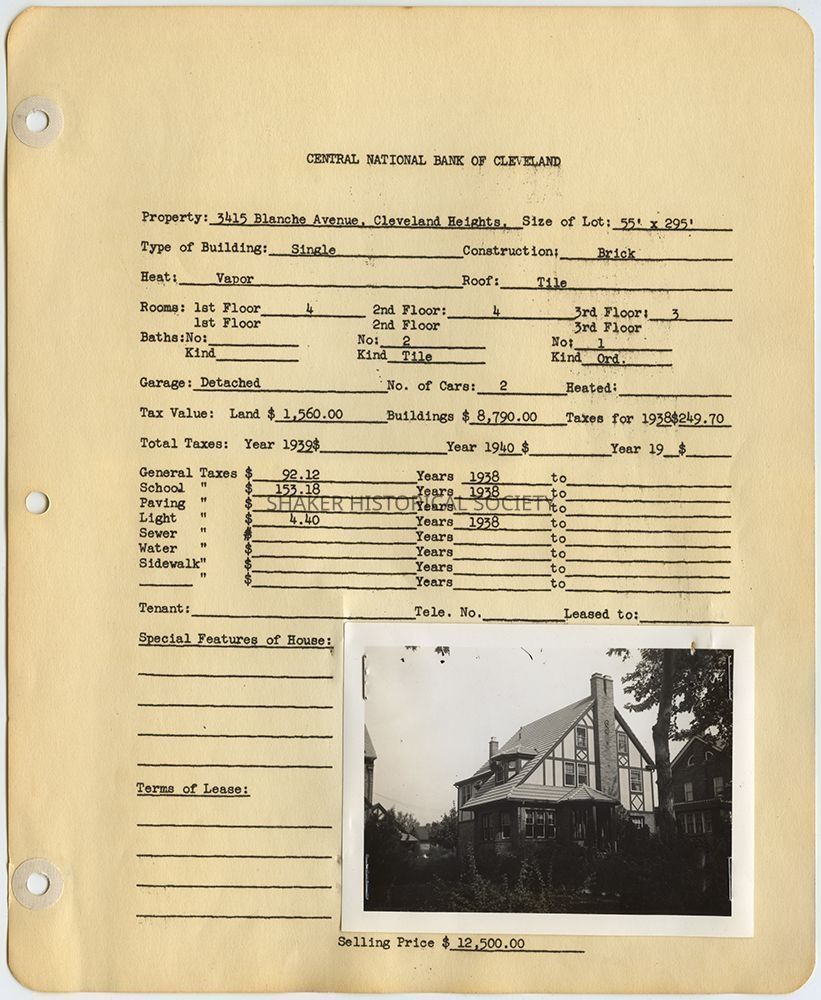 CENTRAL NATIONAL BANK OF CLEVELAND
Property: 3415 Blanche Avenue, Cleveland Heights, Size of Lot: 55' x 295'
Type of Building: Single Construction: Brick
Heat: Vapor Roof: Tile
Rooms: 1st Floor 4 2nd Floor: 4 3rd Floor: 3
1st Floor 2nd Floor 3rd Floor
Baths: No: No: 2 No: 1
Kind Kind Tile Kind Ord.
Garage: Detached No. of Cars: 2 Heated:
Tax Value: Land $ 1,560.00 Buildings $ 8,790.00 Taxes for 1938 $249.70
Total Taxes: Year 1939$ Year 1940 $ Year 19 $
General Taxes $ 92.12 Years 1938 to
School " $ 153.18 Years 1938 to
Paving " $ Years to
SHAKER HISTORICAL SOCIETY
Light " $ 4.40 Years 1938 to
Sewer " $ Years to
Water " $ Years to
Sidewalk" $ Years to
" $ Years to
Tenant: Tele. No. Leased to:
Special Features of House:
Terms of Lease:
Selling Price $ 12,500.00